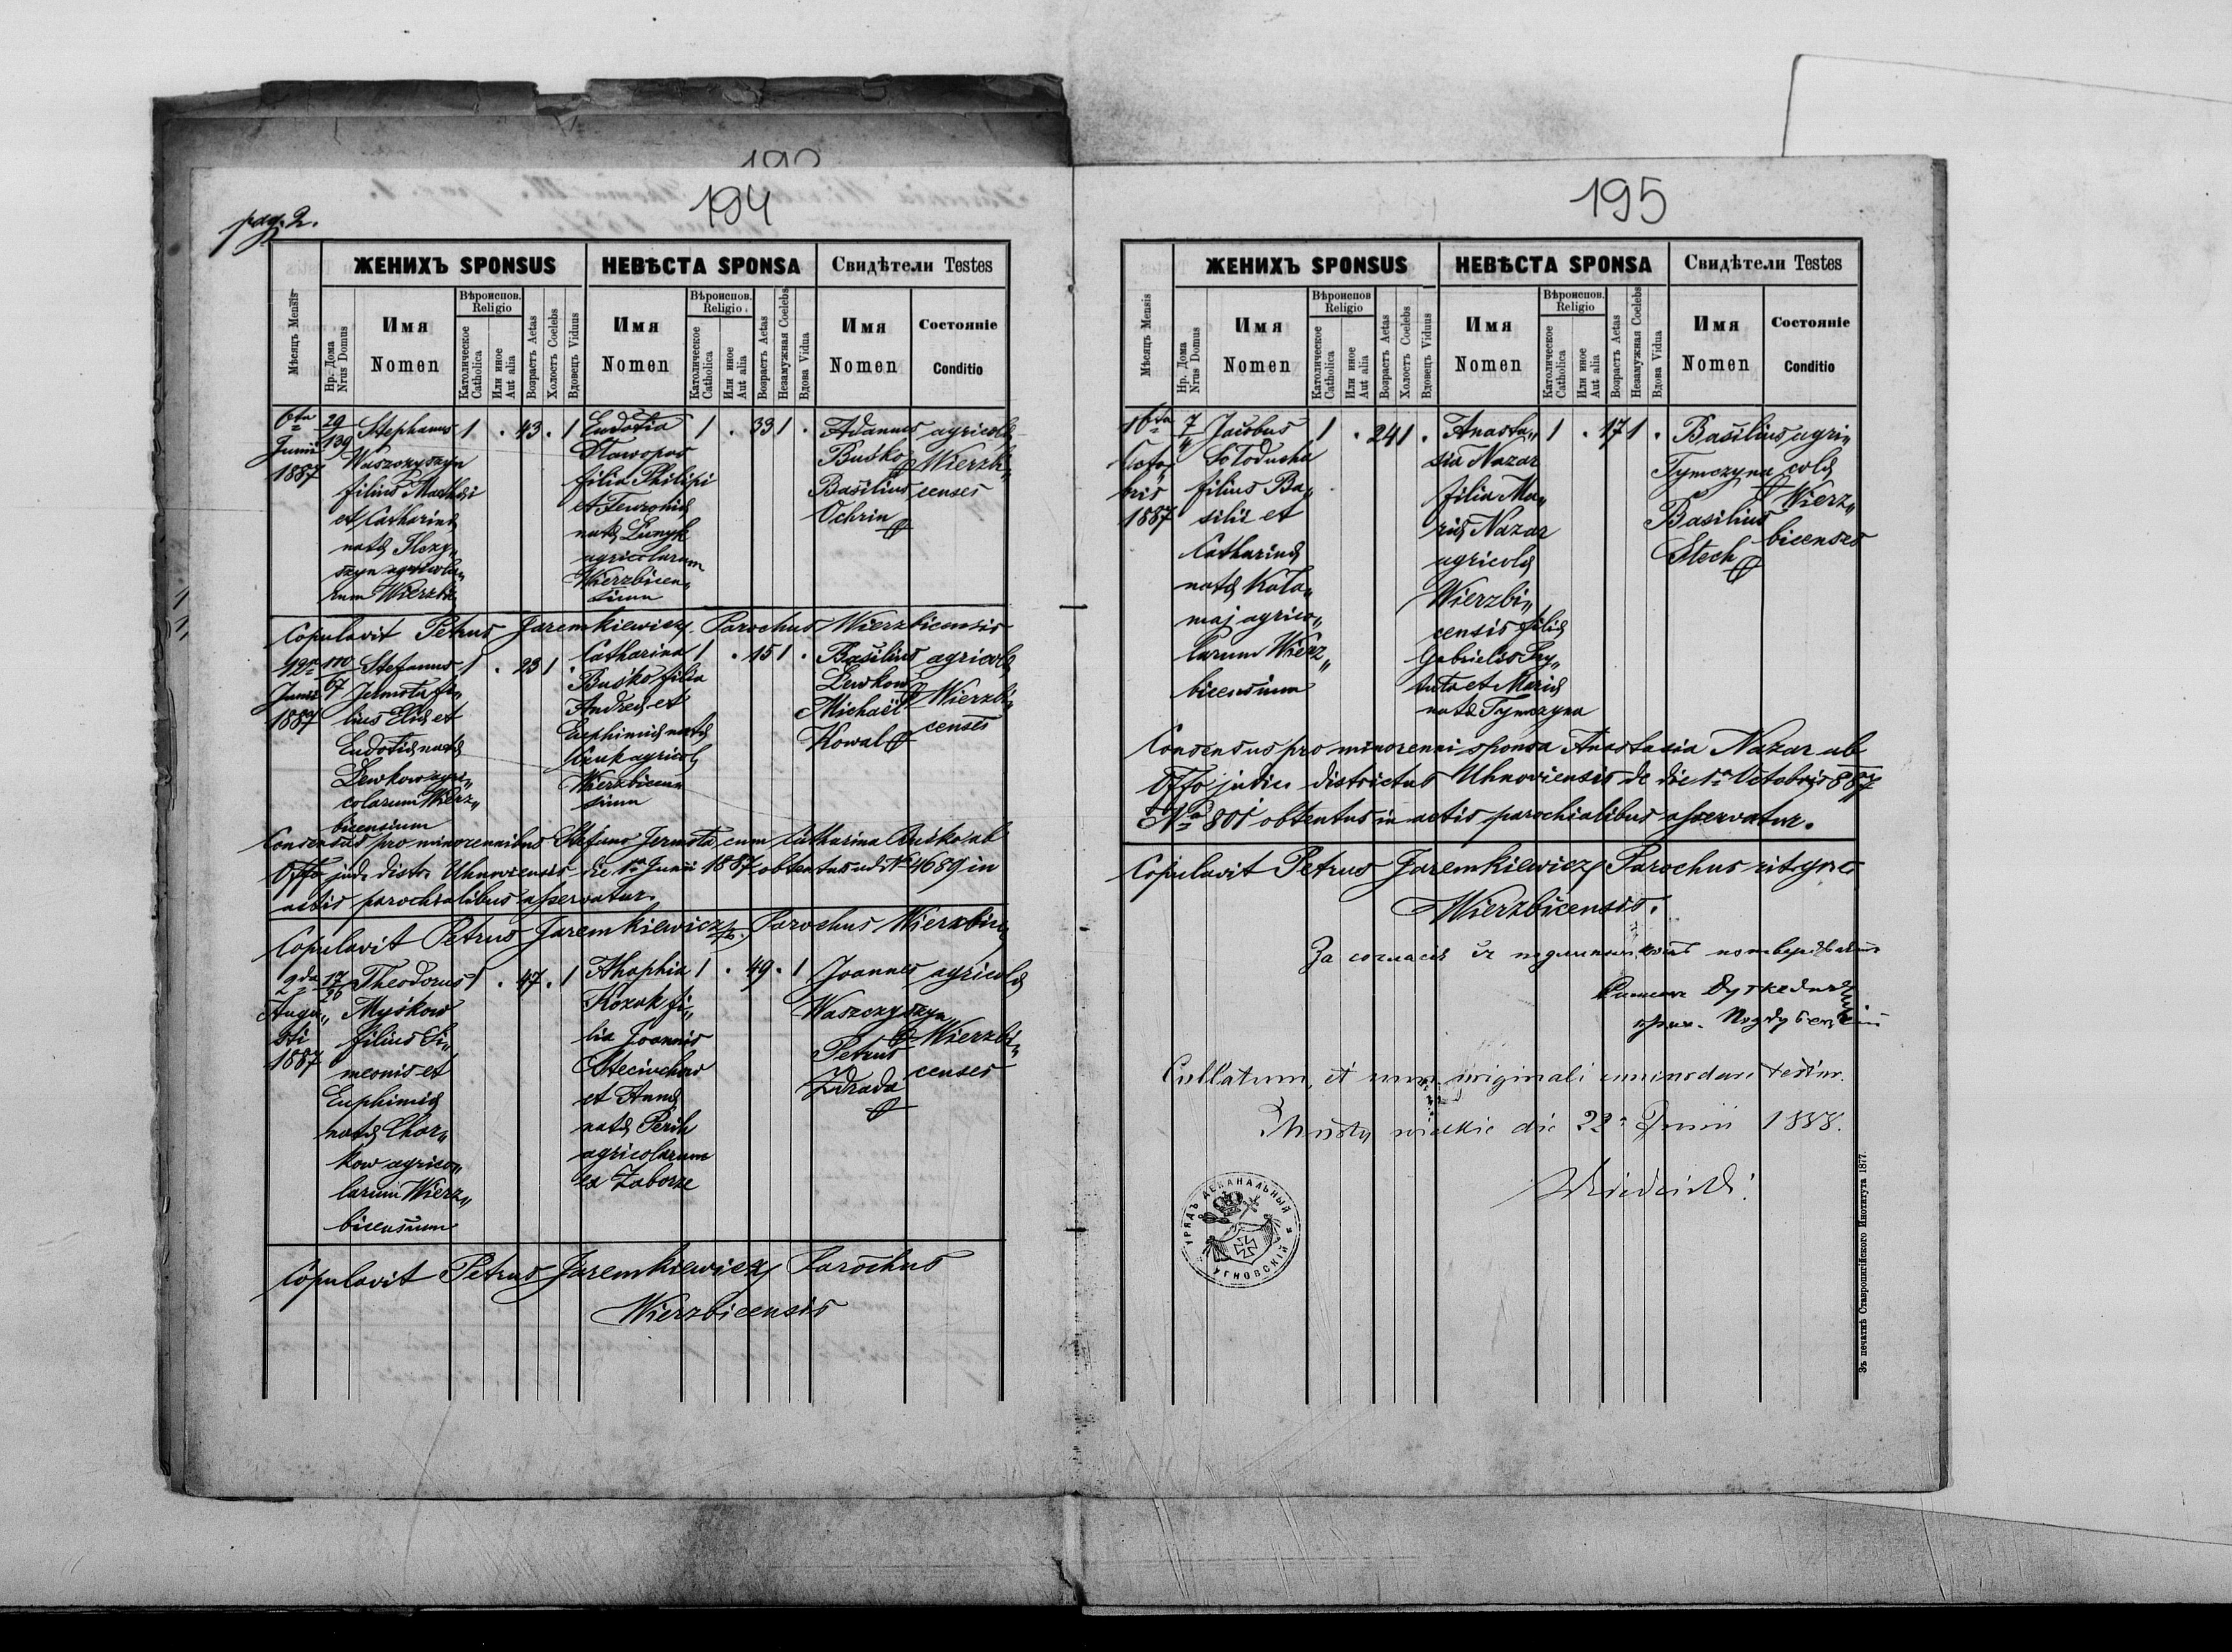 193
194
pag. 2.
Мѣсяцъ Mensis
Нр. Дома Nrus Domus
ЖЕНИХЪ SPONSUS
Имя
Nomen
Вѣроиспов. Religio
Католическое Catholica
Или иное Aut alia
Возрастъ Aetas
Холостъ Coelebs
Вдовецъ Viduus
НЕВѢСТА SPONSA
Имя
Nomen
Вѣроиспов. Religio
Католическое Catholica
Или иное Aut alia
Возрастъ Aetas
Незамужная Coelebs
Вдова Vidua
Свидѣтели Testes
Имя
Nomen
Состояніе
Conditio
6ta
Junii
1887
29
139
Stephanus
Waszczyszyn
filius Mathei
et Catharinæ
natæ
szyn agricola„
rum Wierzbi„
1 . 43 . 1
Eudotia
filia Philipi
et Fewroniæ
natæ Lunyk
agricolarum
Wierzbicen„
sium
1 . 33 1 .
Adamus
Buśko
Basilius
Ochrin
agricolæ
Wierzbi„
censes
Copulavit Petrus Jaremkiewicz Parochus Wierzbicensis
12
Junii
1887
110
67
Stefanus
Jermota fi„
lius Eliæ et
Eudotiæ natæ
Lewkow agri„
colarum Wierz„
bicensium
1 . 23 1 .
Catharina
Buśko filia
Andreæ et
Euphimiæ natæ
agricolæ
Wierzbicen„
sium
1 . 15 1 .
Basilius
Lewkow
Michaël
Kowal
agricolæ
Wierzbi„
censes
Consensus pro minorennibus Stefano Jermota cum Catharina Buśko ab
Offo jude distr. Uhnoviensis die 1a Junii 1887 obtentus ad No 4689 in
actis parochialibus asservatur.
Copulavit Petrus Jaremkiewicz Parochus Wierzbicen„
2da
Augu„
sti
1887
17
26
Theodorus
Myśkow
filius Si„
meonis et
Euphimiæ
natæ Chor„
kow agrico„
larum Wierz„
bicensium
1 . 47 . 1
Ahaphia
Kozak fi„
lia Joannis
Steciuchow
et Annæ
natæ Perih
agricolarum
ex Zaborze
1 . 49 . 1
Joannes
Waszczyszyn
Petrus
Zdrada
agricolæ
Wierzbi„
censes
Copulavit Petrus Jaremkiewicz Parochus
Wierzbicensis
195
Мѣсяцъ Mensis
Нр. Дома Nrus Domus
ЖЕНИХЪ SPONSUS
Имя
Nomen
Вѣроиспов Religio
Католическое Catholica
Или иное Aut alia
Возрастъ Aetas
Холостъ Coelebs
Вдовецъ Viduus
НЕВѢСТА SPONSA
Имя
Nomen
Вѣроиспов. Religio
Католическое Catholica
Или иное Aut alia
Возрастъ Aetas
Незамужная Coelebs
Вдова Vidua
Свидѣтели Testes
Имя
Nomen
Состояніе
Conditio
16ta
Octo„
bris
1887
7
Jacobus
Sołoducha
filius Ba„
silii et
Catharinæ
natæ Koło„
maj agrico„
larum Wierz„
bicensium
1 . 24 1 .
Anasta„
sia Nazar
filia Ma„
riæ Nazar
agricolæ
Wierzbi„
censis filiæ
Gabrielis
et Mariæ
natæ Tymczyna
1 . 17 1 .
Basilius
Tymczyna
Basilius
Stech
agri„
colæ
Wierz„
bicenses
Consensus pro minorenni sponsa Anastasia Nazar ab
Offo judici districtus Uhnoviensis de die 1a Octobris 887
No 801 obtentus in actis parochialibus asservatur.
Copulavit Petrus Jaremkiewicz Parochus rit gr.
Wierzbicensis.
За согласіе съ
Collatum et cum originali testor.
die 22a Junii 1888.
УРЯДЪ ДЕКАНАЛЬНЫЙ
УГНОВСКІЙ
Зъ печатнѣ Ставропигійского Института 1877.